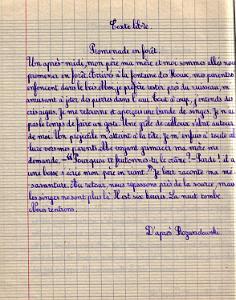 Texte libre.
Promenade en forêt.
Un après-midi, mon père ma mère et moi sommes allés nous
promener en forêt. Arrivé à la fontaine des Roux, mes parents
enfoncent dans les bois. Moi, je préfère rester près du ruisseau, en
m'amusant à jeter des pierres dans l'eau. Tout à coup, j'entends des
cris aigus. Je me retourne et aperçois une bande de singes. Je n'ai
pas le temps de faire un geste. Une grêle de cailloux s'abat autour
de moi. Un projectile m'atteint à la tête. Je m'enfuis à toute al
lure vers mes parents. Me voyant grimacer, ma mère me
demande. "Pourquoi te frottes-tu le crâne? - Tiens! il a
une bosse" crie mon père en riant. Je leur raconte ma mé
saventure. Au retour, nous repassons près de la source, mais
les singes ne sont plus là. Il est six heures. La nuit tombe
Nous rentrons.
D'après